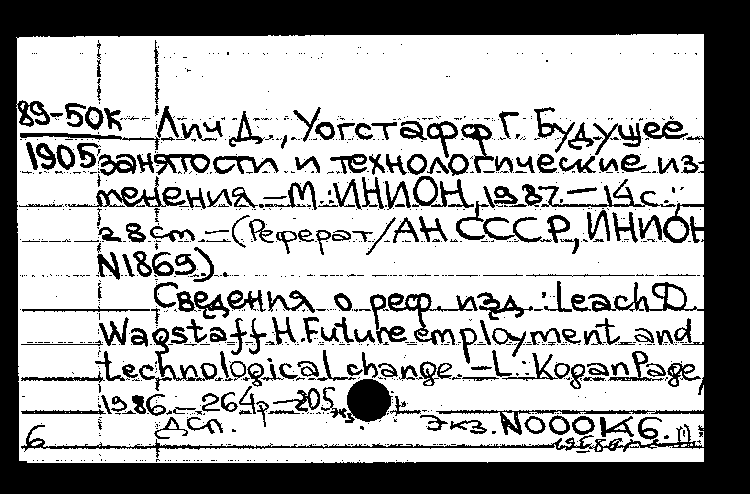 89-50К Лич Д., Уогстафф Г. Будущее
1905 занятости и технологические из-
менения. — М.: ИНИОН, 1987. — 14 с.;
28 cm. — (Реферат/АН СССР, ИНИОН
N1869).
Сведения о реф. изд.: Leach D.
Wagstaff H. Future employment and
technological change. — L.: Kogan Page,
1986. — 264p — 205 экз.
ДСП. Экз. N000146.
6